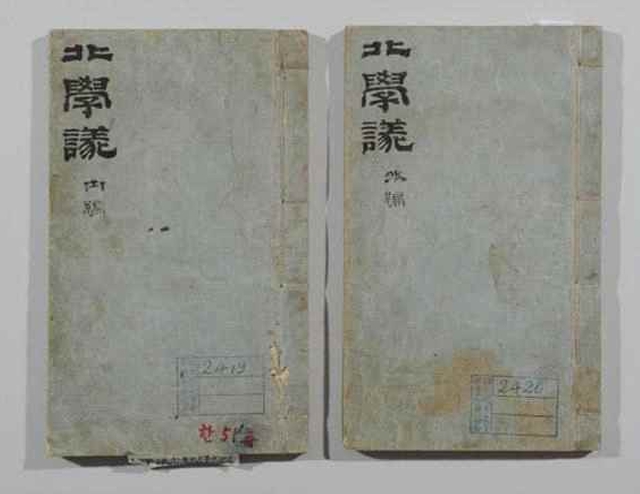 北學議
內編
2419
北學議
外編
2420